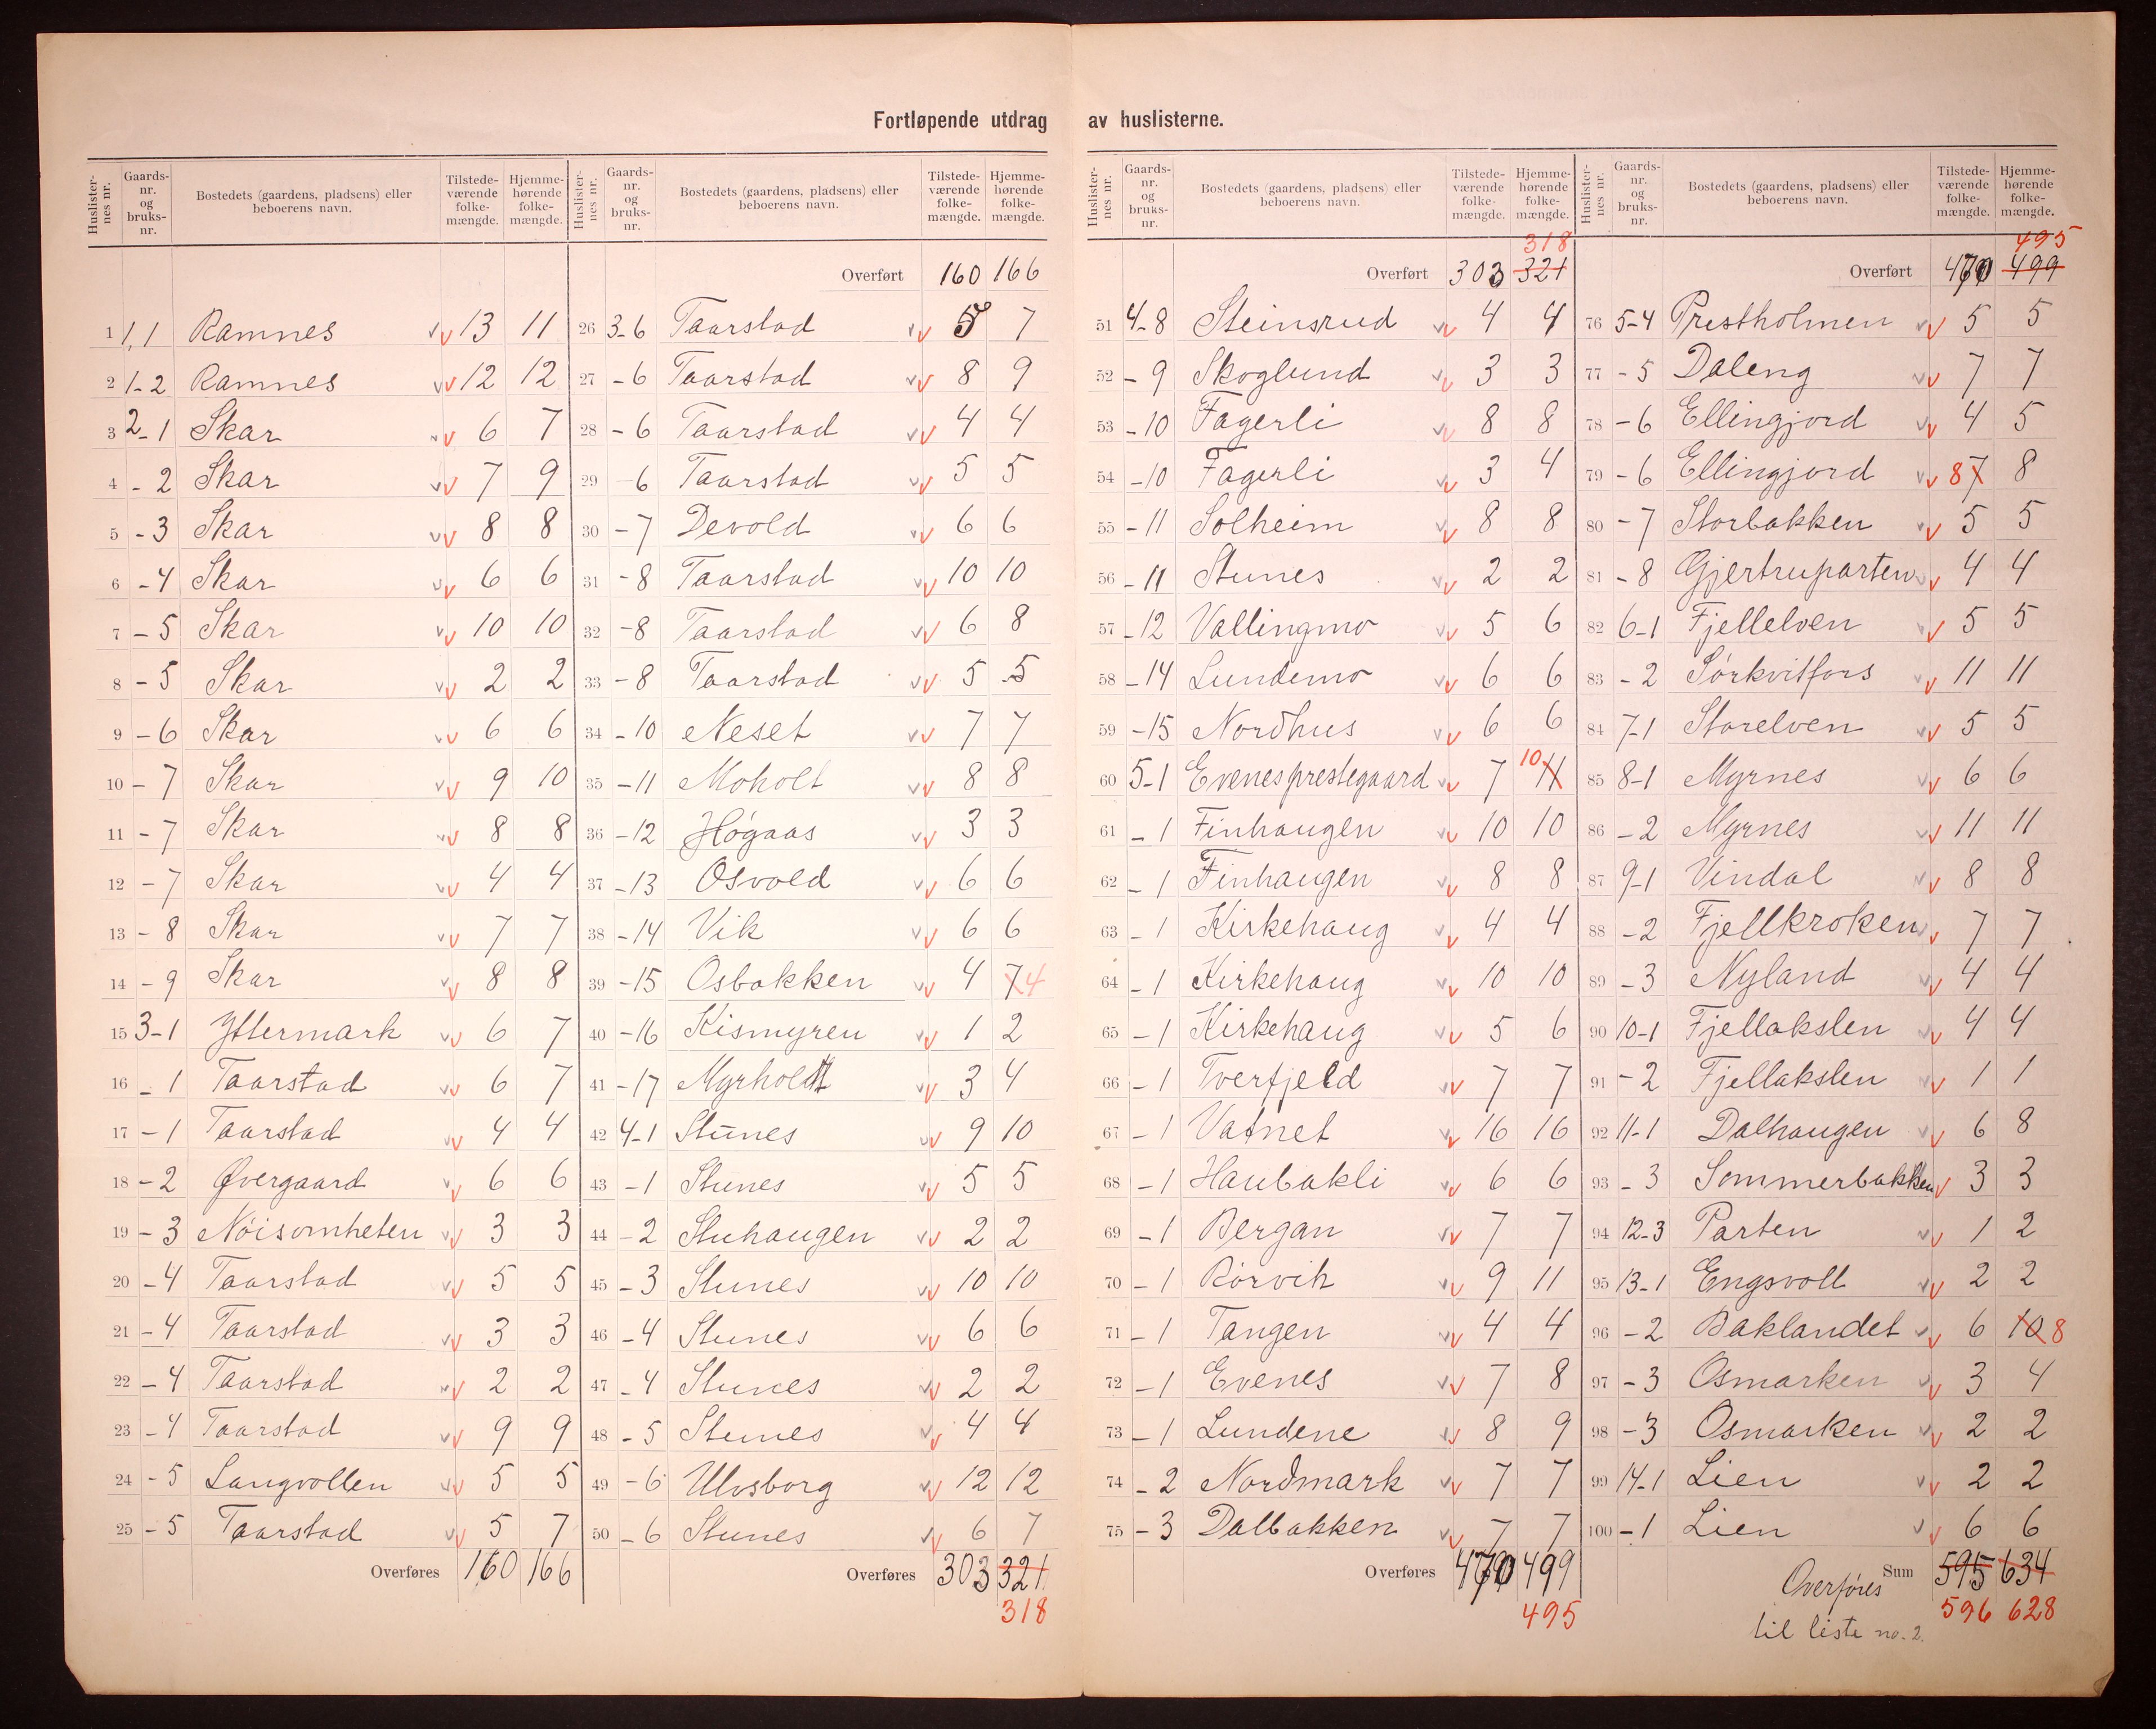 Fortløpende utdrag av huslisterne.
Huslister-nes nr. Gaards-nr. og bruks-nr. Bostedets (gaardens, pladsens) eller beboerens navn. Tilstede-værende folke-mængde. Hjemme-hørende folke-mængde.
1 1,1 Ramnes 13 11
2 1-2 Ramnes 12 12
3 2-1 Skar 6 7
4 -2 Skar 7 9
5 -3 Skar 8 8
6 -4 Skar 6 6
7 -5 Skar 10 10
8 -5 Skar 2 2
9 -6 Skar 6 6
10 -7 Skar 9 10
11 -7 Skar 8 8
12 -7 Skar 4 4
13 -8 Skar 7 7
14 -9 Skar 8 8
15 3-1 Yttermark 6 7
16 -1 Taarstad 6 7
17 -1 Taarstad 4 4
18 -2 Øvergaard 6 6
19 -3 Nöisomheten 3 3
20 -4 Taarstad 5 5
21 -4 Taarstad 3 3
22 -4 Taarstad 2 2
23 -4 Taarstad 9 9
24 -5 Langvollen 5 5
25 -5 Taarstad 5 7
Overføres 160 166
Huslister-nes nr. Gaards-nr. og bruks-nr. Bostedets (gaardens, pladsens) eller beboerens navn. Tilstede-værende folke-mængde. Hjemme-hørende folke-mængde.
Overført 160 166
26 3-6 Taarstad 5 7
27 -6 Taarstad 8 9
28 -6 Taarstad 4 4
29 -6 Taarstad 5 5
30 -7 Devold 6 6
31 -8 Taarstad 10 10
32 -8 Taarstad 6 8
33 -8 Taarstad 5 5
34 -10 Neset 7 7
35 -11 Moholt 8 8
36 -12 Høgaas 3 3
37 -13 Osvold 6 6
38 -14 Vik 6 6
39 -15 Osbakken 4 7 4
40 -16 Kismyren 1 2
41 -17 Myrholt 3 4
42 4-1 Stunes 9 10
43 -1 Stunes 5 5
44 -2 Stuhaugen 2 2
45 -3 Stunes 10 10
46 -4 Stunes 6 6
47 -4 Stunes 2 2
48 -5 Stunes 4 4
49 -6 Ulvsborg 12 12
50 -6 Stunes 6 7
Overføres 303 321
318
Huslister-nes nr. Gaards-nr. og bruks-nr. Bostedets (gaardens, pladsens) eller beboerens navn. Tilstede-værende folke-mængde. Hjemme-hørende folke-mængde.
318
Overført 303 321
51 4-8 Steinsrud 4 4
52 -9 Skoglund 3 3
53 -10 Fagerli 8 8
54 -10 Fagerli 3 4
55 -11 Solheim 8 8
56 -11 Stunes 2 2
57 -12 Vallingmo 5 6
58 -14 Lundemo 6 6
59 -15 Nordhus 6 6
60 5-1 Evenes prestegaard 7 10 11
61 -1 Finhaugen 10 10
62 -1 Finhaugen 8 8
63 -1 Kirkehaug 4 4
64 -1 Kirkehaug 10 10
65 -1 Kirkehaug 5 6
66 -1 Tverfjeld 7 7
67 -1 Vatnet 16 16
68 -1 Haubakli 6 6
69 -1 Bergan 7 7
70 -1 Rørvik 9 11
71 -1 Tangen 4 4
72 -1 Evenes 7 8
73 -1 Lundene 8 9
74 -2 Nordmark 7 7
75 -3 Dalbakken 7 7
Overføres 470 499
495
Huslister-nes nr. Gaards-nr. og bruks-nr. Bostedets (gaardens, pladsens) eller beboerens navn. Tilstede-værende folke-mængde. Hjemme-hørende folke-mængde.
495
Overført 470 499
76 5-4 Prestholmen 5 5
77 -5 Daleng 7 7
78 -6 Ellingjord 4 5
79 -6 Ellingjord 8 7 8
80 -7 Storbakken 5 5
81 -8 Gjertruparten 4 4
82 6-1 Fjellelven 5 5
83 -2 Sørkvitfors 11 11
84 7-1 Storelven 5 5
85 8-1 Myrnes 6 6
86 -2 Myrnes 11 11
87 9-1 Vindal 8 8
88 -2 Fjellkroken 7 7
89 -3 Nyland 4 4
90 10-1 Fjellakslen 4 4
91 -2 Fjellakslen 1 1
92 11-1 Dalhaugen 6 8
93 -3 Sommerbakken 3 3
94 12-3 Parten 1 2
95 13-1 Engsvoll 2 2
96 -2 Baklandet 6 10 8
97 -3 Osmarken 3 4
98 -3 Osmarken 2 2
99 14-1 Lien 2 2
100 -1 Lien 6 6
Sum 595 634
Overføres 596 628
til liste no. 2.